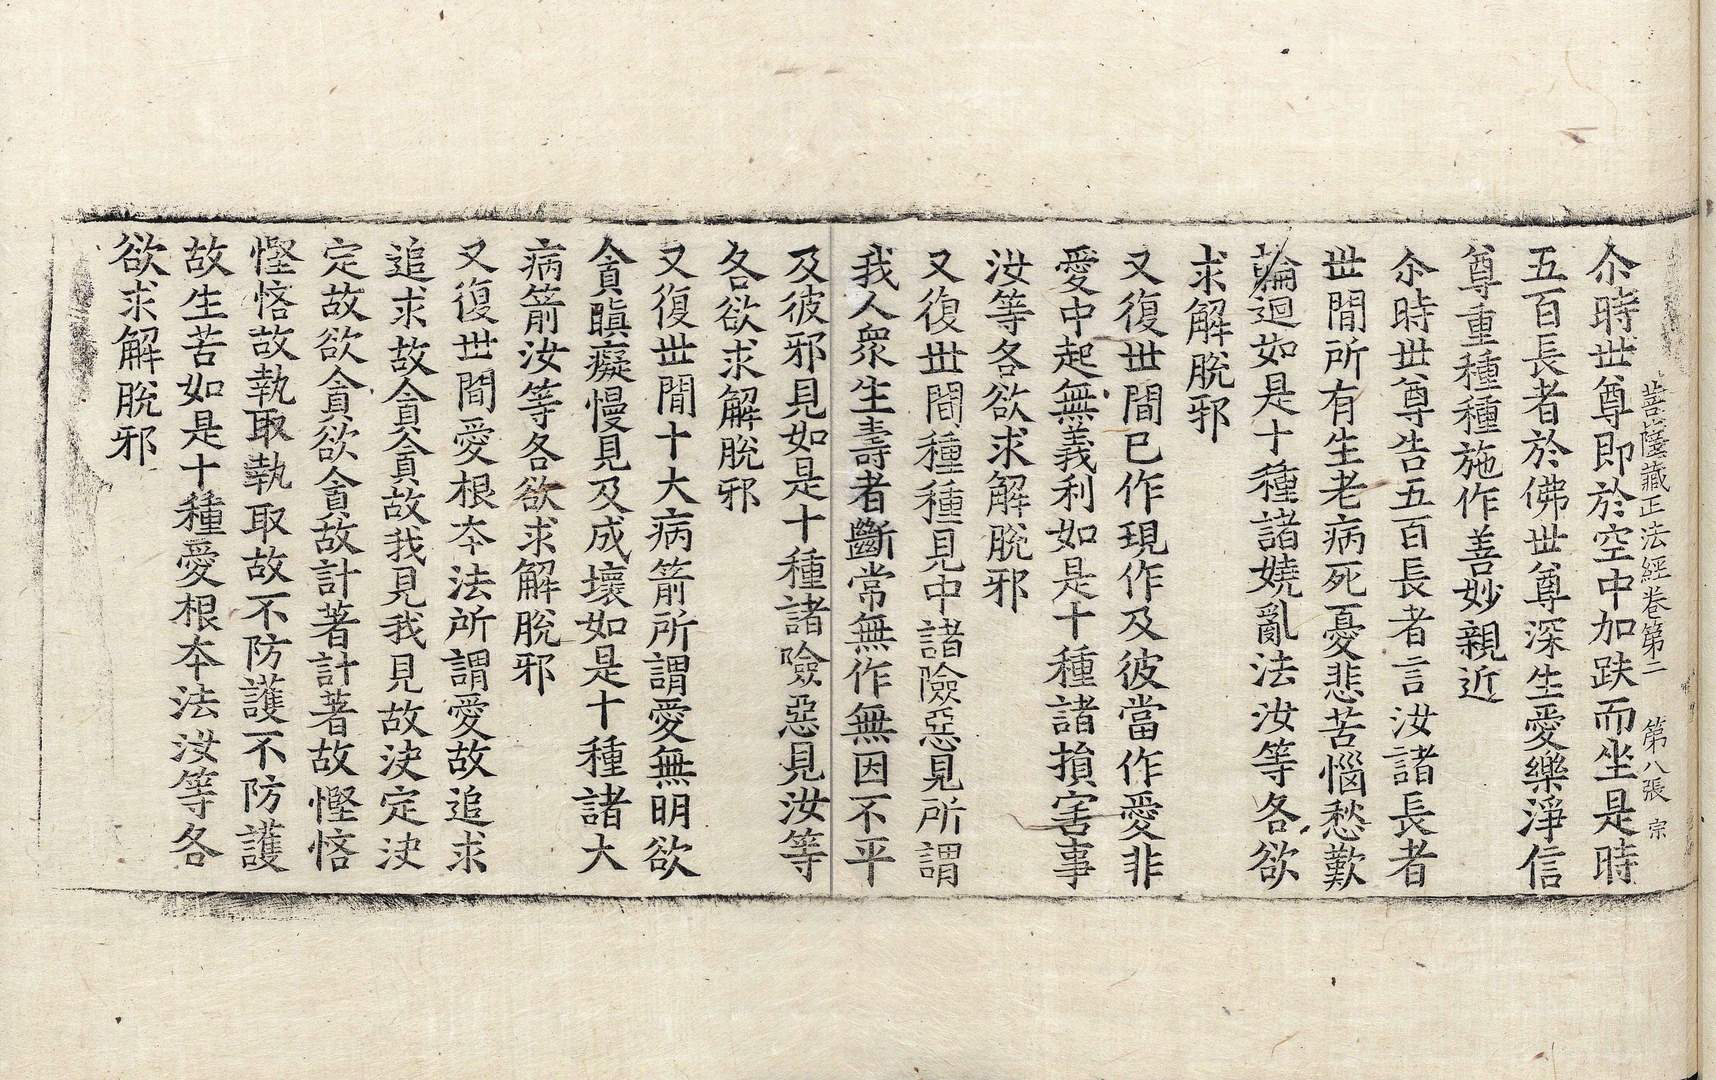 菩薩藏正法經卷第二 第八張 宗
尒時世尊即於空中加趺而坐是時
五百長者於佛世尊深生愛樂淨信
尊重種種施作善妙親近
尒時世尊告五百長者言汝諸長者
世間所有生老病死憂悲苦惱愁歎
輪迴如是十種諸嬈亂法汝等各欲
求解脫邪
又復世間已作現作及彼當作愛非
愛中起無義利如是十種諸損害事
汝等各欲求解脫邪
又復世間種種見中諸險惡見所謂
我人衆生壽者斷常無作無因不平
及彼邪見如是十種諸險惡見汝等
各欲求解脫邪
又復世間十大病箭所謂愛無明欲
貪瞋癡慢見及成壞如是十種諸大
病箭汝等各欲求解脫邪
又復世間愛根夲法所謂愛故追求
追求故貪貪故我見我見故決定決
定故欲貪欲貪故計著計著故慳悋
慳悋故執取執取故不防護不防護
故生苦如是十種愛根夲法汝等各
欲求解脫邪